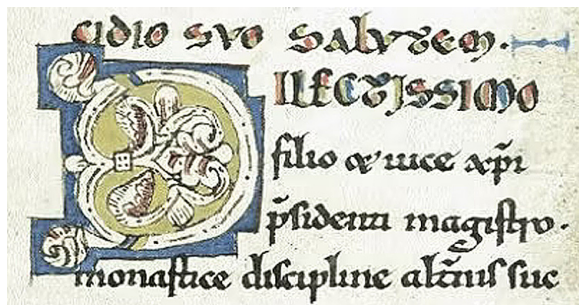 cidio suo salutem. I
DILECTISSIMO
filio & uice xp̄i
p̄sidenti magistro.
monastice discipline alt̄nis suc